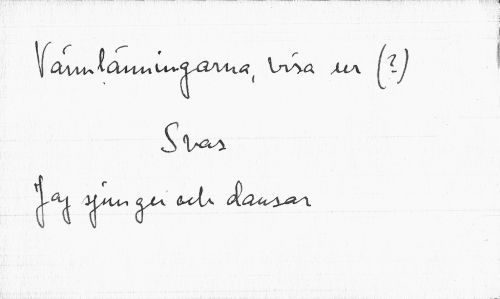 Värmlänningarna, visa ur (?)
Svas
Jag sjunger och dansar